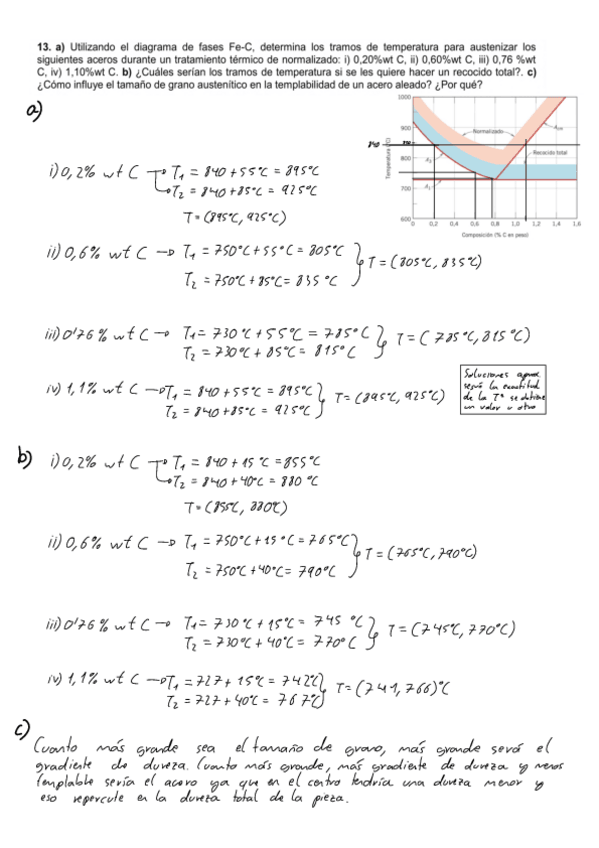 13. a) Utilizando el diagrama de fases Fe-C, determina los tramos de temperatura para austenizar los
siguientes aceros durante un tratamiento térmico de normalizado: i) 0,20%wt C, ii) 0,60%wt C, iii) 0,76 %wt
C, iv) 1,10%wt C. b) ¿Cuáles serían los tramos de temperatura si se les quiere hacer un recocido total?. c)
¿Cómo influye el tamaño de grano austenítico en la templabilidad de un acero aleado? ¿Por qué?
a)
1000
900
800
700
600
Temperatura (°C)
840
Normalizado
Acm
A3
Recocido total
A1
0 0,2 0,4 0,6 0,8 1,0 1,2 1,4 1,6
Composición (% C en peso)
i) 0,2% wt C → T1 = 840 + 55°C = 895°C
→ T2 = 840 + 85°C = 925°C
T = (895°C, 925°C)
ii) 0,6% wt C → T1 = 750°C + 55°C = 805°C
T2 = 750°C + 85°C = 835°C
T = (805°C, 835°C)
iii) 0'76% wt C → T1 = 730°C + 55°C = 785°C
T2 = 730°C + 85°C = 815°C
T = (785°C, 815°C)
iv) 1,1% wt C → T1 = 840 + 55°C = 895°C
T2 = 840 + 85°C = 925°C
T = (895°C, 925°C)
Soluciones aprox.
según la exactitud
de la Tª se obtiene
un valor u otro
b)
i) 0,2% wt C → T1 = 840 + 15°C = 855°C
→ T2 = 840 + 40°C = 880°C
T = (855°C, 880°C)
ii) 0,6% wt C → T1 = 750°C + 15°C = 765°C
T2 = 750°C + 40°C = 790°C
T = (765°C, 790°C)
iii) 0'76% wt C → T1 = 730°C + 15°C = 745°C
T2 = 730°C + 40°C = 770°C
T = (745°C, 770°C)
iv) 1,1% wt C → T1 = 727 + 15°C = 742°C
T2 = 727 + 40°C = 767°C
T = (741, 766)°C
c)
Cuanto más grande sea el tamaño de grano, más grande será el
gradiente de dureza. Cuanto más grande, más gradiente de dureza y menos
templable sería el acero ya que en el centro tendría una dureza menor y
eso repercute en la dureza total de la pieza.